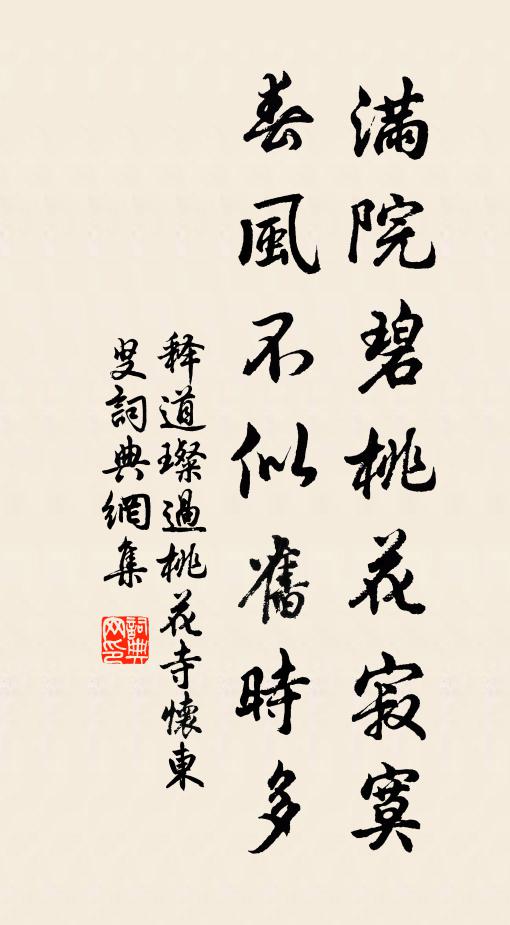 滿院碧桃花寂寞
春風不似舊時多
釋道璨過桃花寺懷東
叟詞典網集
詞典
网印